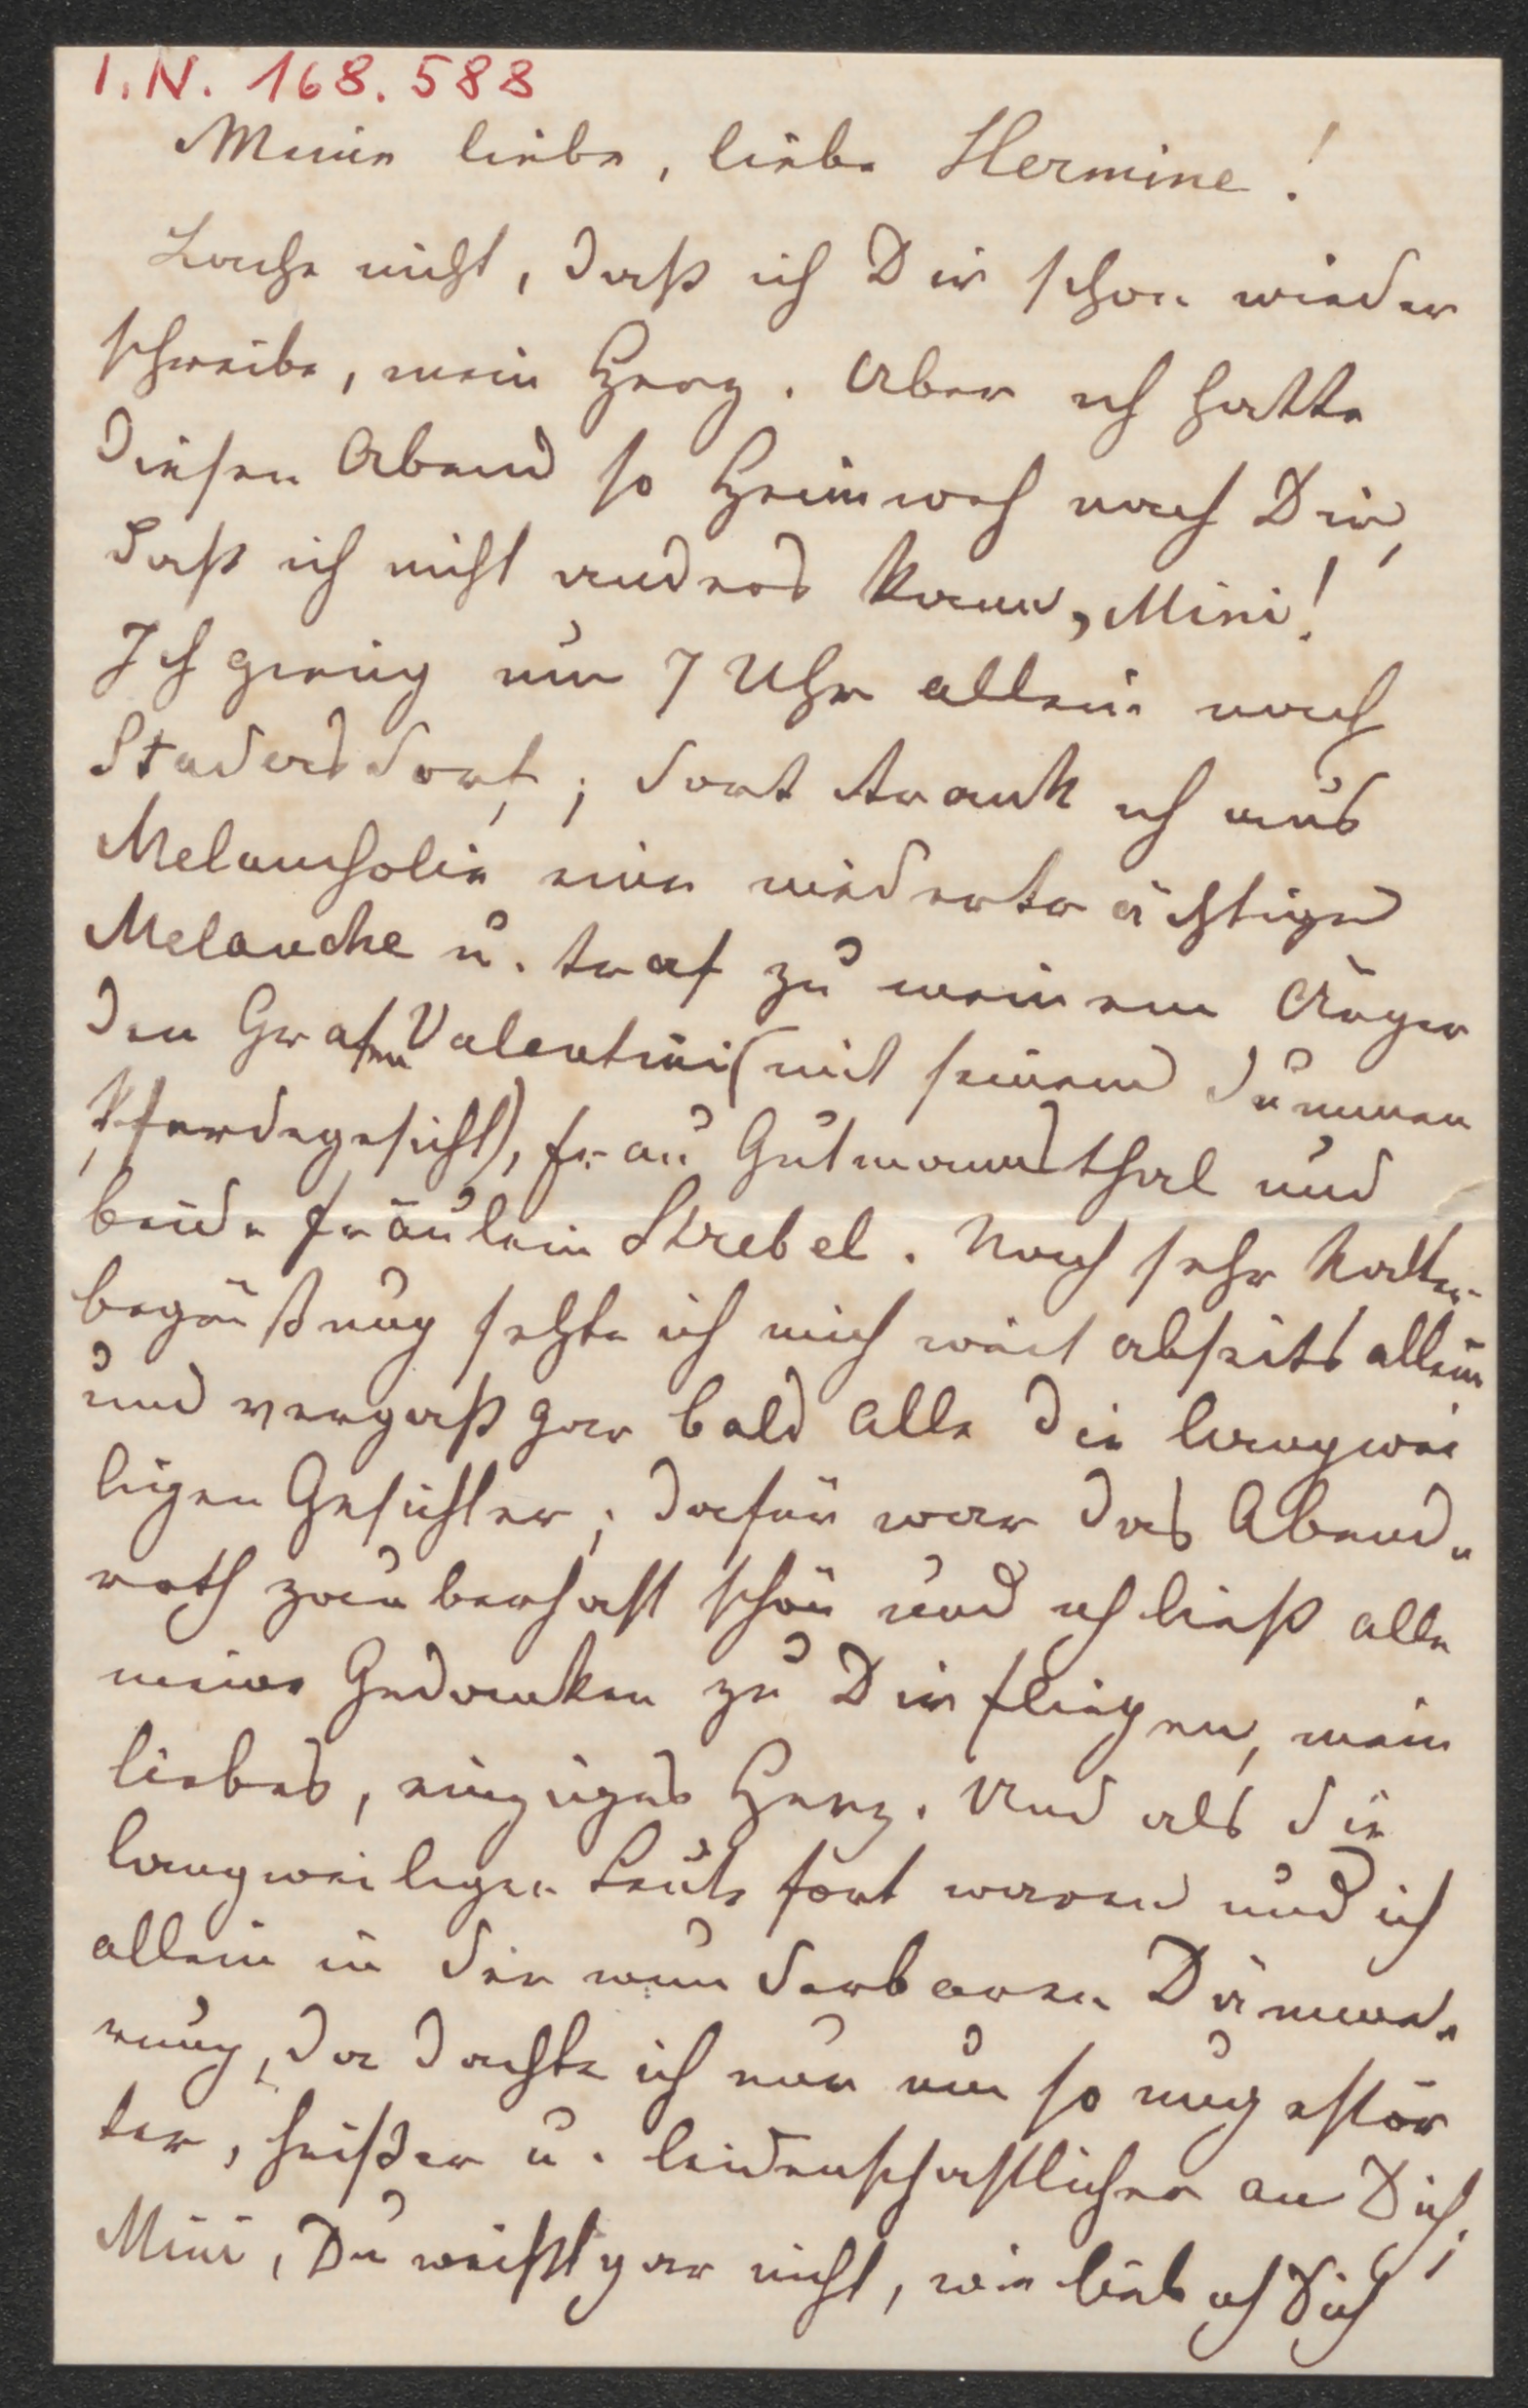 I.N. 168.588
Meine liebe, liebe Hermine!
Lache nicht, daß ich Dir schon wieder
schreibe, mein Herz. Aber ich hatte
diesen Abend so Heimweh nach Dir,
daß ich nicht anders kann, Mini!
Ich gieng um 7 Uhr allein nach
dort trank ich aus
Melancholie eine niederträchtige
Melanche u. traf zu meinem Ärger
den Grafen Valentini (mit seinem dummen
Pferdegesicht), Frau Gutmannsthal und
beide Fräulein Strebel. Nach sehr kalter
Begrüßung setzte ich mich weit abseits allein
und vergaß gar bald alle die langwei
ligen Gesichter; dafür war das Abend-
roth zauberhaft schön und ich ließ alle
meine Gedanken zu Dir fliegen, mein
liebes, einziges Herz. Und als die
langweiligen Leute fort waren und ich
allein in der wunderbaren Dämme-
rung, da dachte ich nur um so ungestör
ter, heißer u. leidenschaftlicher an Dich,
Mini, Du weißt gar nicht, wie lieb ich Dich